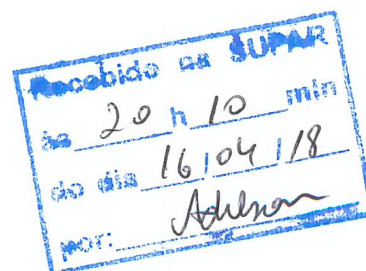 Recebido na SUPAR
às 20 h 10 min
do dia 16/04/18
por: